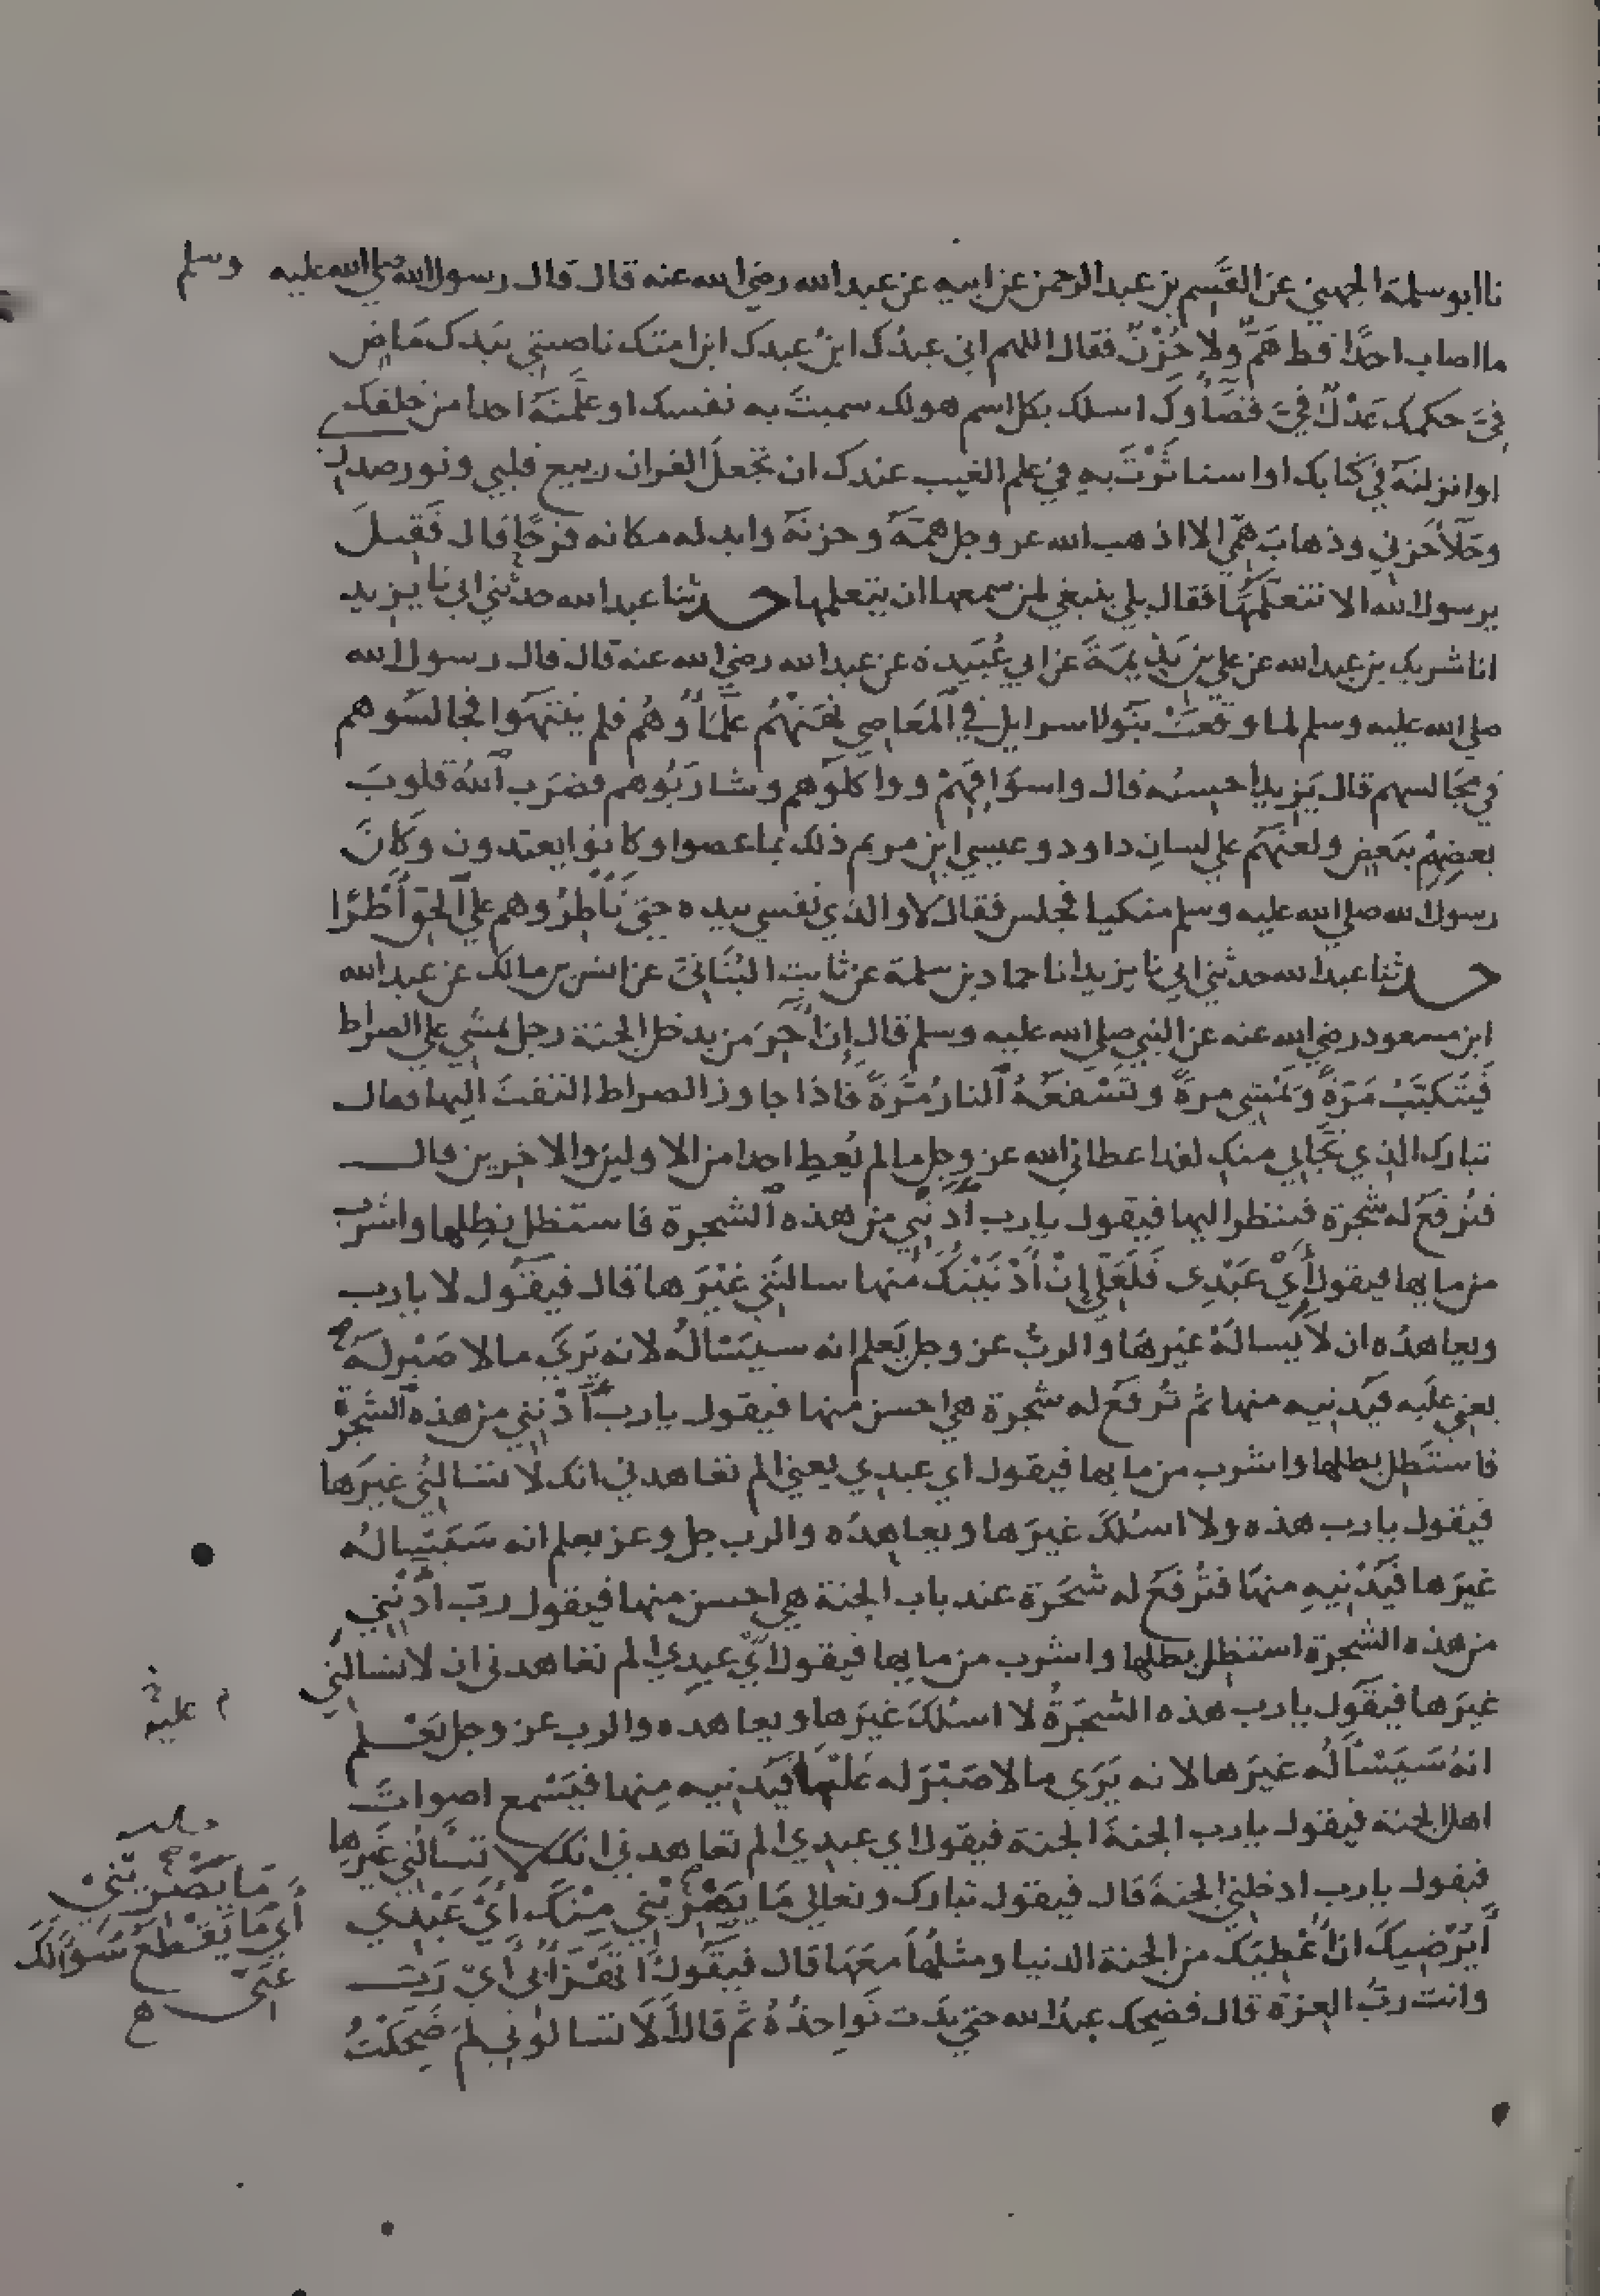 نا ابو سلمة الجهني عن القسم بن عبد الرحمن عن ابيه عن عبد الله رضي الله عنه قال قال رسول الله صلي الله عليه وسلم
ما اصاب احدًا قط هَمٌّ ولا حُزْنٌ فقال اللهم اني عبدُك ابنُ عبدِك ابن امتك ناصيتي بيَدك مَاضٍ
فِيَّ حكمك عَدْلٌ فِيَّ قضَاوكَ اسلك بكل اسم هو لك سميتَ به نفسك او علَّمتَهُ احدا من خلقك
او انزلتَه في كتابك او استاثَرْتَ بهِ في علم الغيب عندك ان تجعلَ القران ربيع قلبي ونور صدري
وجَلآ حَزني وذهابَ هَمِّي الا اذهب الله عز وجل هَمَّهُ وحزنَهُ وابدله مكانه فرحًا قال فَقِيلَ
يرسول الله الا نتعلّمُهَا فقال بلي ينبغي لمن سمعها ان يتعلمها حدثنا عبد الله حدثني ابي نا يزيد
انا شريك بن عبد الله عن علي بن بَذِيمَةَ عن ابي عُبَيدة عن عبد الله رضي الله عنه قال قال رسول الله
صلي الله عليه وسلم لما وقعَتْ بَنُو اسرايل في المعَاصي نَهَتْهُم علمَاوُهُم فلم ينتهَوا فجالسُوهم
في مجَالسهم قال يَزيد احسبُه قال واسوَاقِهِمْ وواكلُوهم وشارَبُوهم فضَرَب اللهُ قلوبَ
بعضِهِمْ ببَعضٍ ولعنَهُم علي لسانِ داود وعيسي ابن مريم ذلك بما عصوا وكانوا يعتدون وَكَانَ
رسول الله صلي الله عليه وسلم متكيا فجلس فقال لا والذي نفسي بيده حتي تَأطِرُوهم علي الحَق أَطْرًا
حدثنا عبد الله حدثني ابي نا يزيد انا حماد بن سلمة عن ثابتٍ البُنَانيّ عن انس بن مالك عن عبد الله
ابن مسعود رضي الله عنه عن النبي صلي الله عليه وسلم قال إِن آخِرَ مَن يدخل الجنة رجل يمشي علي الصراط
فَيَنكَبُّ مَرّةً وَيمْشِي مرةً وتَسْفعُهُ النار مَرّةً فاذا جاوز الصراط التفتَ اليها فقال
تبارك الذي نَجّاني منكِ لقد اعطاني الله عز وجل ما لم يُعطِ احدا من الاولين والاخرين قال
فتُرفَعُ له شجرة فينظر اليها فيقول يا رب أَدْنِنِي من هذه الشجرة فاستظل بظِلها واشرب
من مايها فيقول أَيْ عَبْدِي فَلَعَلِّي إِنْ أَدْنَيْتُكَ مِنها سالتَنِي غَيْرَها قال فيقُول لا يا رب
ويعاهدُه ان لَا يسالَهُ غيرهَا والربُّ عز وجل يَعلم انه سيَسْالُه لانه يَرَي ما لا صَبْر لَهُ
يعني عليه فيُدنِيه منها ثم تُرفَعُ له شجرة هي احسن منها فيقول يا رب أَدْنِنِي من هذه الشجرة
فاستَظِل بظلها واشرب من مايها فيقول اي عبدي يعني الم تعاهدني انك لا تسالُنِي غيرَها
فيقول يا رب هذه ولا اسلكَ غيرَها ويعاهِدُه والرب جل وعز يعلم انه سَيَسالُه
غيرَها فيُدْنيهِ منهَا فتُرفَعُ له شجَرة عند باب الجنة هي احسن منها فيقول ربّ أَدْنِنِي
من هذه الشجرة استظل بظلها واشرب من مايها فيقول أيْ عبدِي الم تعاهدني ان لا تسالَنِي
غيرَها فيقُول يا رب هذه الشجَرَةُ لا اسلكَ غيرَها ويعاهده والرب عز وجل يَعْلم
انهُ سَيَسْأَلُه غيرَها لانه يَرَي ما لا صَبْرَ له عليْها فيُدنِيه مِنها فيَسْمع اصواتَ
اهل الجنة فيقول يا رب الجنةَ الجنة فيقول اي عبدي الم تعاهدني انك لا تسْأَلُني غَيْرها
فيقول يا رب ادخلني الجنةَ قال فيقول تبارك وتعالي مَا يَصْرِيْنِي مِنْكَ أَيْ عَبْدِي
أَيُرْضِيكَ ان أُعْطِيَك من الجنة الدنيا ومثلهَا معَهَا قال فيَقُولُ أتَهْزَأُ بي أَيْ رَبّ
وانت ربُّ العِزة قال فضحِك عبدُ الله حتي بدَت نَواجِذُهُ ثم قال أَلَا تسالوني لِمَ ضَحِكْتُ
عليه
مَا يَصْرِيْنِي
أي مَا يَقْطَعُ سُؤالَكَ
عَنِّي